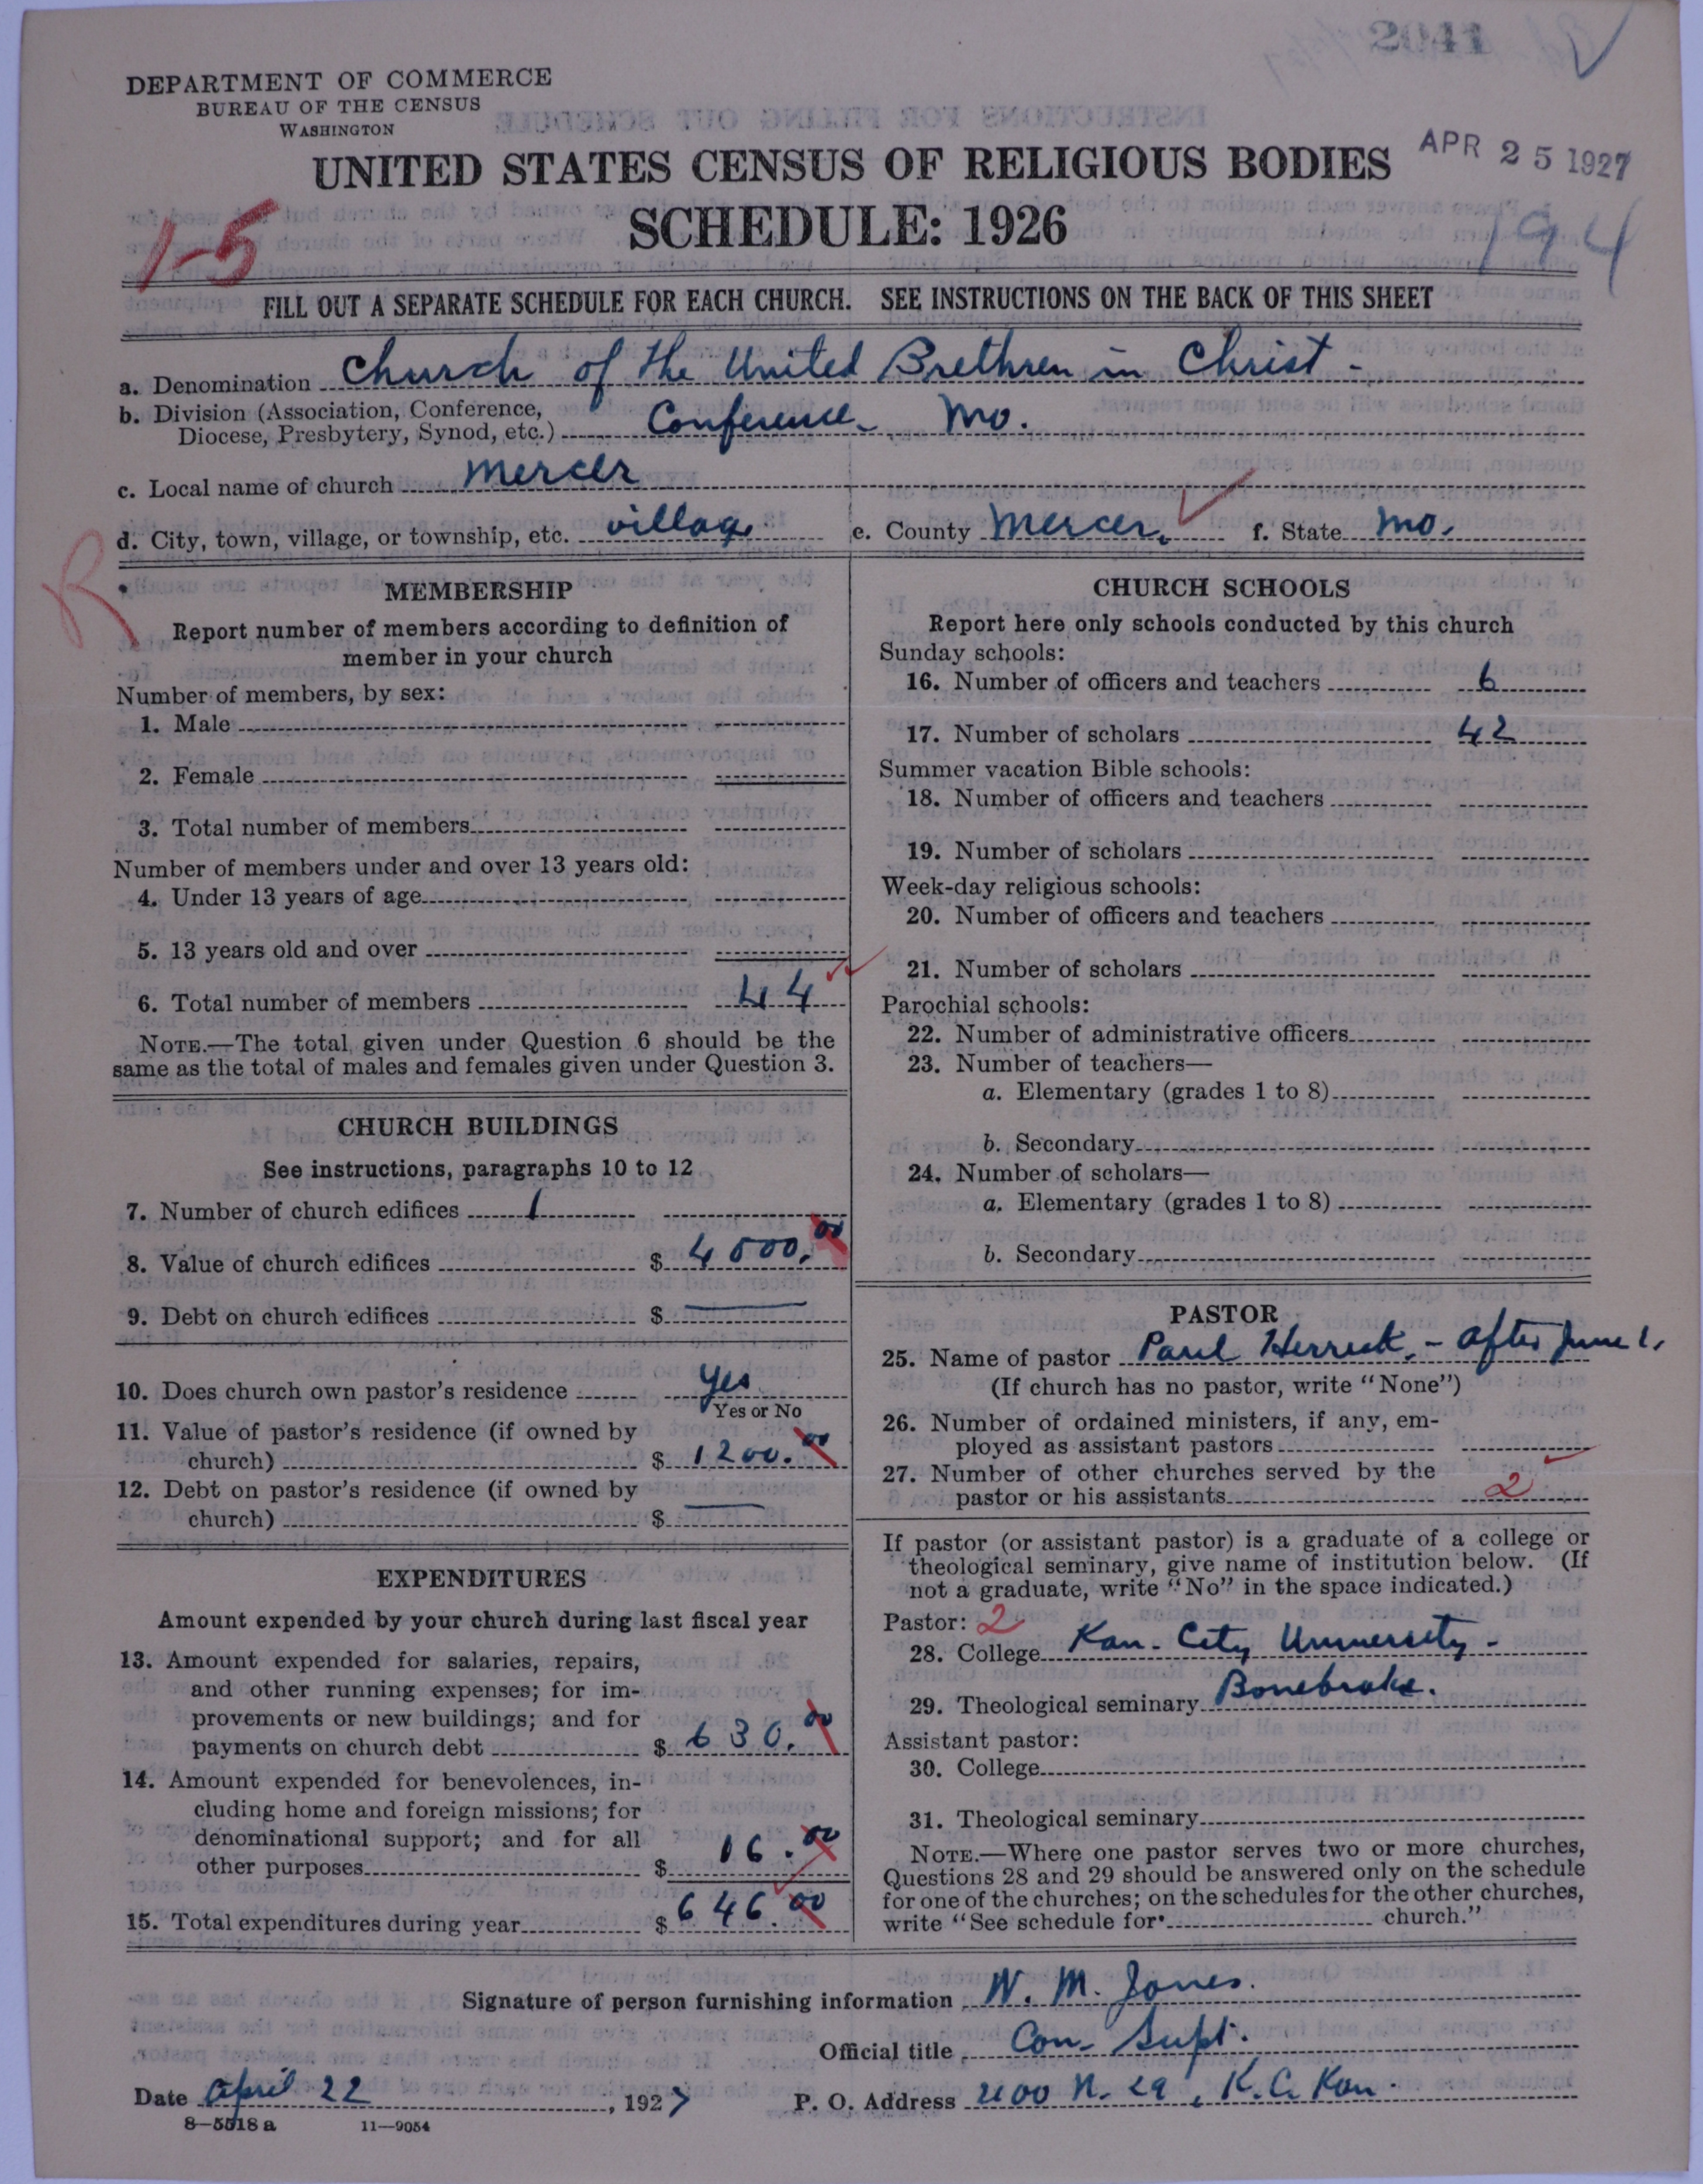 2041
DEPARTMENT OF COMMERCE
BUREAU OF THE CENSUS
WASHINGTON
APR 25 1927
UNITED STATES CENSUS OF RELIGIOUS BODIES
SCHEDULE: 1926
1-5
194
FILL OUT A SEPARATE SCHEDULE FOR EACH CHURCH. SEE INSTRUCTIONS ON THE BACK OF THIS SHEET
a. Denomination Church of the United Brethren in Christ -
b. Division (Association, Conference,
Diocese, Presbytery, Synod, etc.) Conference - Mo.
c. Local name of church Mercer
d. City, town, village, or township, etc. village e. County Mercer. f. State Mo.
R
MEMBERSHIP
Report number of members according to definition of
member in your church
Number of members, by sex:
1. Male
2. Female
3. Total number of members
Number of members under and over 13 years old:
4. Under 13 years of age
5. 13 years old and over
6. Total number of members 44
NOTE.—The total given under Question 6 should be the
same as the total of males and females given under Question 3.
CHURCH BUILDINGS
See instructions, paragraphs 10 to 12
7. Number of church edifices 1
8. Value of church edifices $ 4000.00
9. Debt on church edifices $ —
10. Does church own pastor's residence yes
Yes or No
11. Value of pastor's residence (if owned by
church) $ 1200.00
12. Debt on pastor's residence (if owned by
church) $ —
EXPENDITURES
Amount expended by your church during last fiscal year
13. Amount expended for salaries, repairs,
and other running expenses; for im-
provements or new buildings; and for
payments on church debt $ 630.00
14. Amount expended for benevolences, in-
cluding home and foreign missions; for
denominational support; and for all
other purposes $ 16.00
15. Total expenditures during year $ 646.00
CHURCH SCHOOLS
Report here only schools conducted by this church
Sunday schools:
16. Number of officers and teachers 6
17. Number of scholars 42
Summer vacation Bible schools:
18. Number of officers and teachers
19. Number of scholars
Week-day religious schools:
20. Number of officers and teachers
21. Number of scholars
Parochial schools:
22. Number of administrative officers
23. Number of teachers—
a. Elementary (grades 1 to 8)
b. Secondary
24. Number of scholars—
a. Elementary (grades 1 to 8)
b. Secondary
PASTOR
25. Name of pastor Paul Herrick. - after June 1.
(If church has no pastor, write "None")
26. Number of ordained ministers, if any, em-
ployed as assistant pastors
27. Number of other churches served by the
pastor or his assistants 2
If pastor (or assistant pastor) is a graduate of a college or
theological seminary, give name of institution below. (If
not a graduate, write "No" in the space indicated.)
Pastor: 2
28. College Kan. City University -
29. Theological seminary Bonebrake.
Assistant pastor:
30. College
31. Theological seminary
NOTE.—Where one pastor serves two or more churches,
Questions 28 and 29 should be answered only on the schedule
for one of the churches; on the schedules for the other churches,
write "See schedule for church."
Signature of person furnishing information W. M. Jones.
Official title Con. Supt.
Date April 22, 1927 P. O. Address N. 29, K. C. Kan.
8—5518 a 11—9054